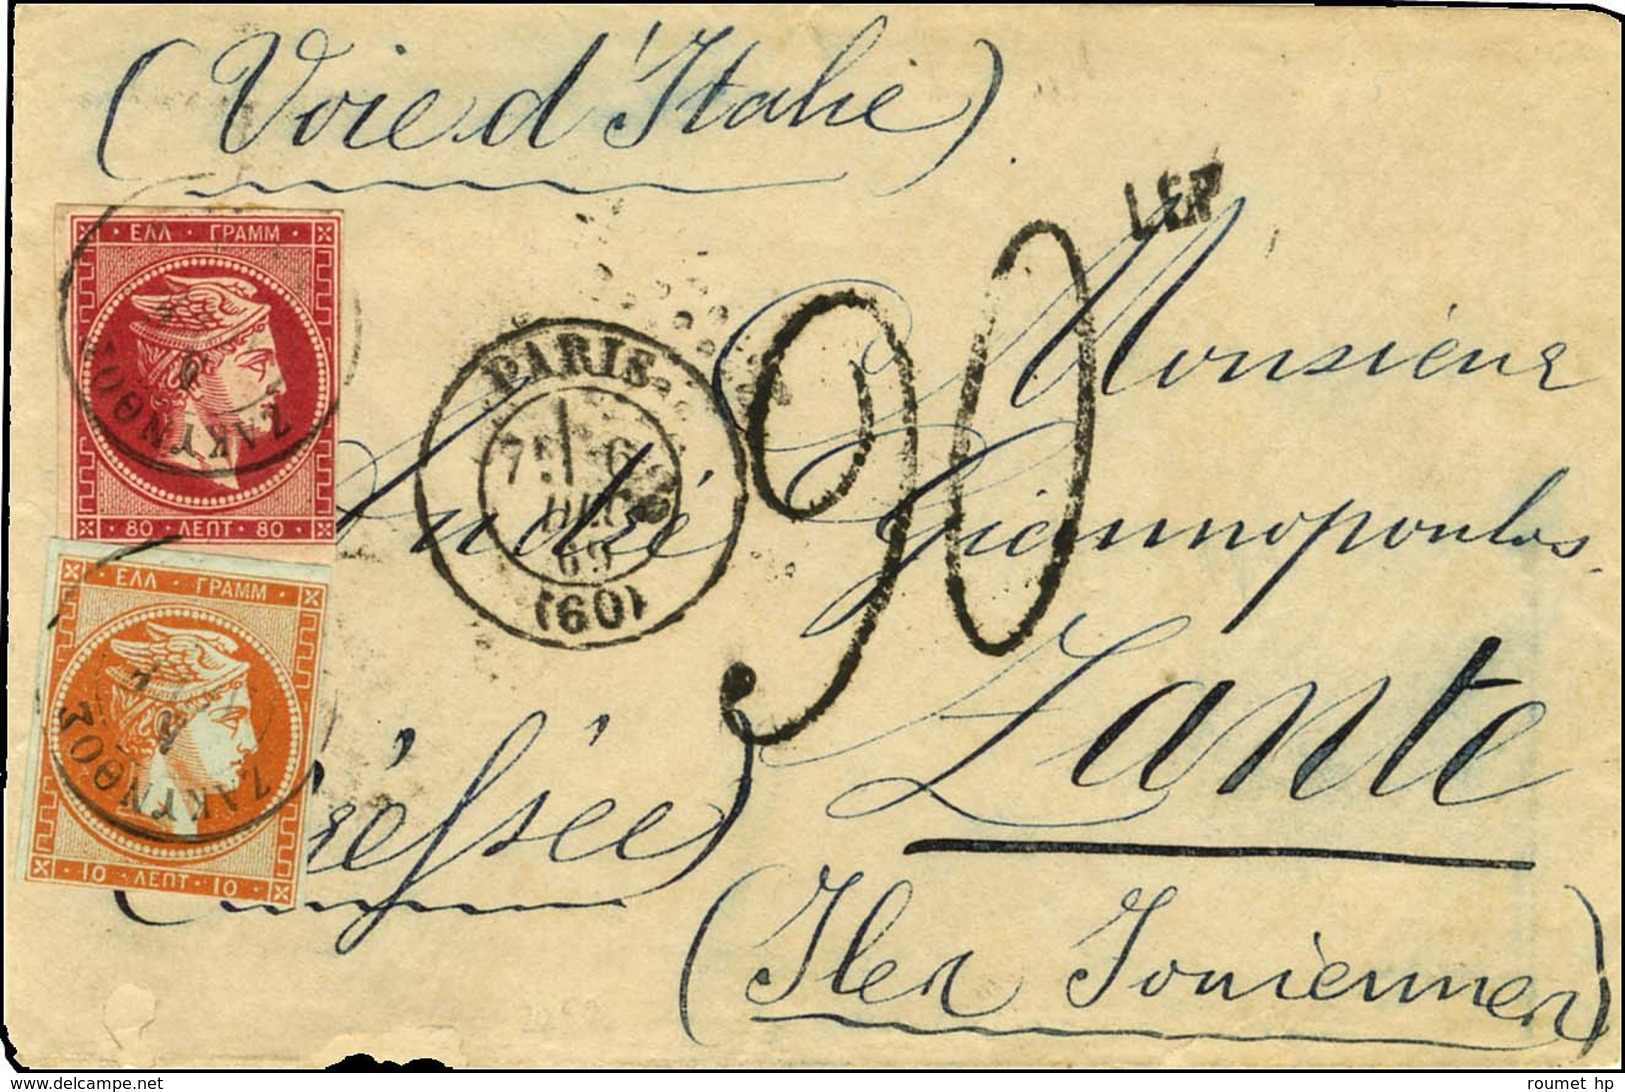 (Voie d'Italie)
90 ΛΕΠ
ΕΛΛ · ΓΡΑΜΜ
80 · ΛΕΠΤ · 80
ΖΑΚΥΝΘΟΣ
PARIS
7E 6
DEC
69
(60)
Monsieur
André Giannopoulos
Zante
(Iles Ioniennes)
ΕΛΛ · ΓΡΑΜΜ
10 · ΛΕΠΤ · 10
ΖΑΚΥΝΘΟΣ
roumet hp